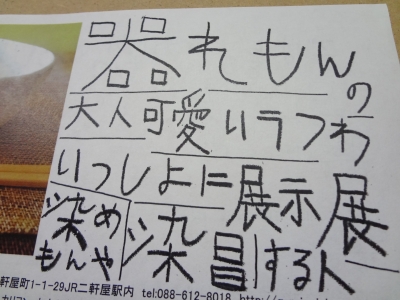 器れもんの
大人可愛いうつわ
いっしょに展示展
染めもんや
染昌する人
軒屋町1-1-29JR二軒屋駅内 tel:088-612-8018 http://